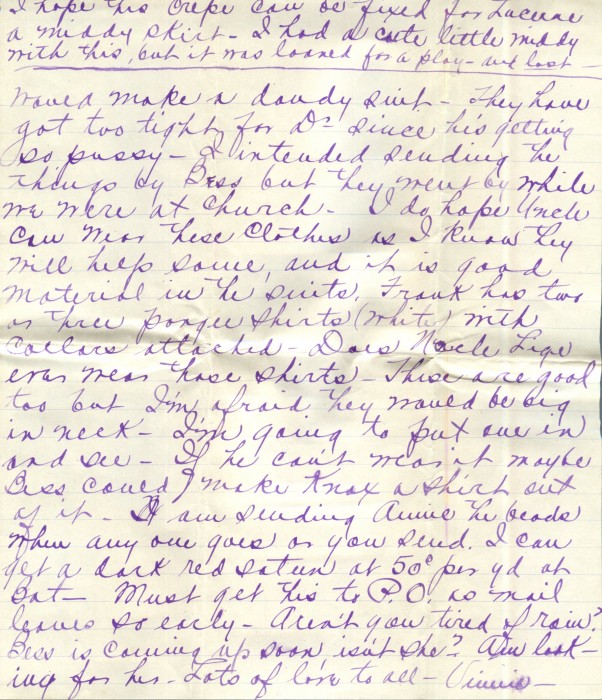 I hope this crepe can be fixed for Lucerne
a middy skirt - I had a cute little middy
with this, but it was loaned for a play - and lost -
would make a dandy suit - They have
got too tight for Dr since he's getting
so pussy - I intended sending the
things by Bess but they went by while
we were at church - I do hope Uncle
can wear these clothes as I know they
will help some, and it is good
material in the suits. Frank has two
or three pongee shirts (white) with
collars attached - Does Uncle Lige
ever wear those shirts - These are good
too but I'm afraid they would be big
in neck - I'm going to put one in
and see - If he can't wear it maybe
Bess could make Knox a shirt out
of it - I am sending Annie the beads
when any one goes or you send. I can
get a dark red satun at 50¢ per yd at
Bat - Must get this to P.O. as mail
leaves so early - Aren't you tired of rain?
Bess is coming up soon, isn't she? Am look-
ing for her - Lots of love to all - Vinnie -